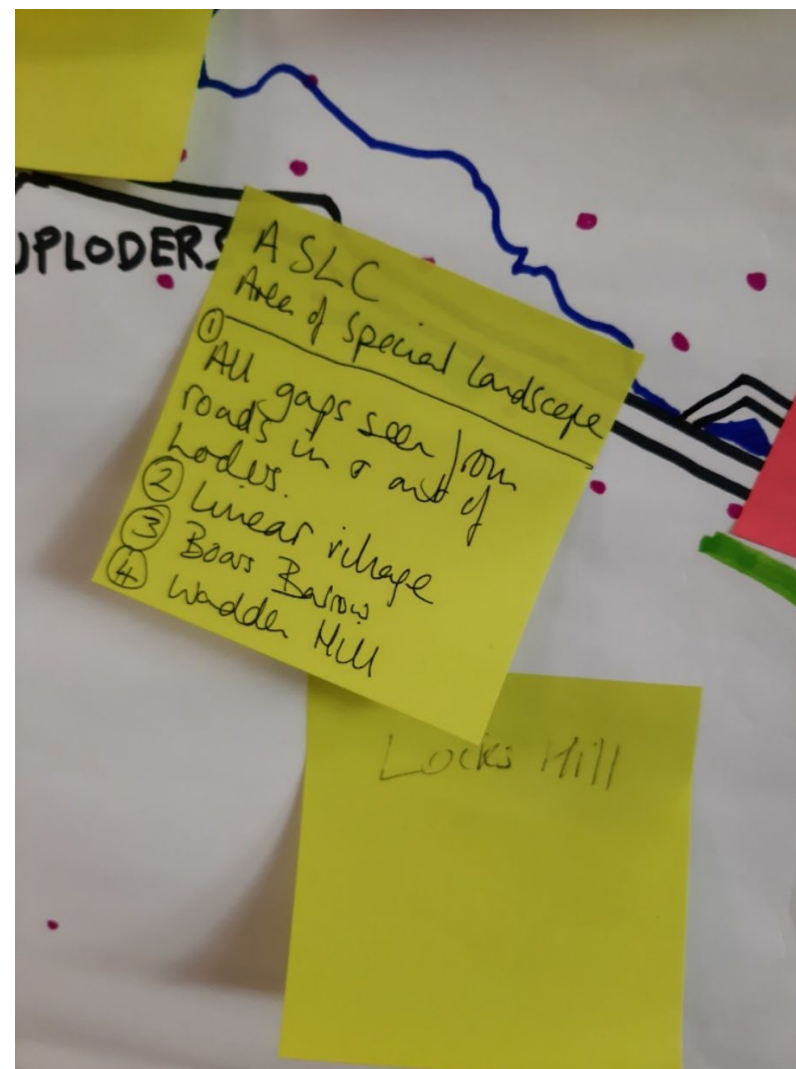 UPLODERS
ASLC
Area of Special Landscape
① All gaps seen from
roads in & out of
Loders.
② Linear village
③ Boars Barrow
④ Wadden Hill
Locks Hill